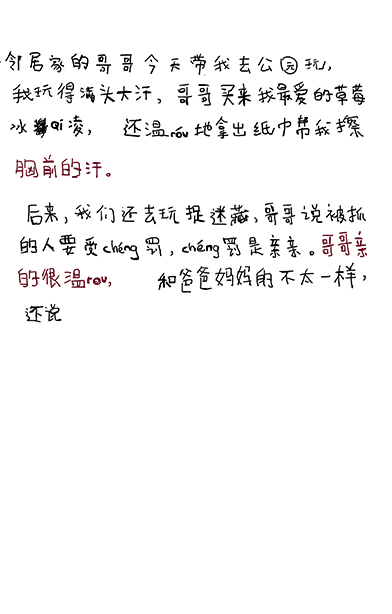 邻居家的哥哥今天带我去公园玩,
我玩得满头大汗，哥哥买来我最爱的草莓
冰qi凌， 还温róu地拿出纸巾帮我擦
胸前的汗。
后来,我们还去玩捉迷藏,哥哥说被抓
的人要受chéng罚,chéng罚是亲亲。哥哥亲
的很温rou, 和爸爸妈妈的不太一样,
还说